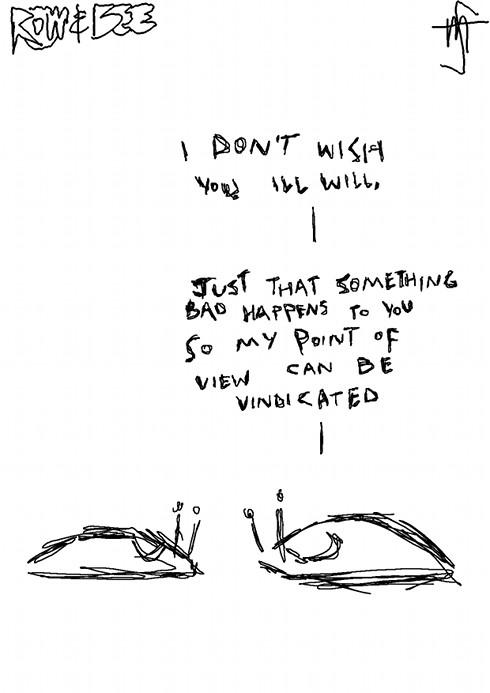 ROW & BEE
I DON'T WISH
YOU ILL WILL,
JUST THAT SOMETHING
BAD HAPPENS TO YOU
SO MY POINT OF
VIEW CAN BE
VINDICATED